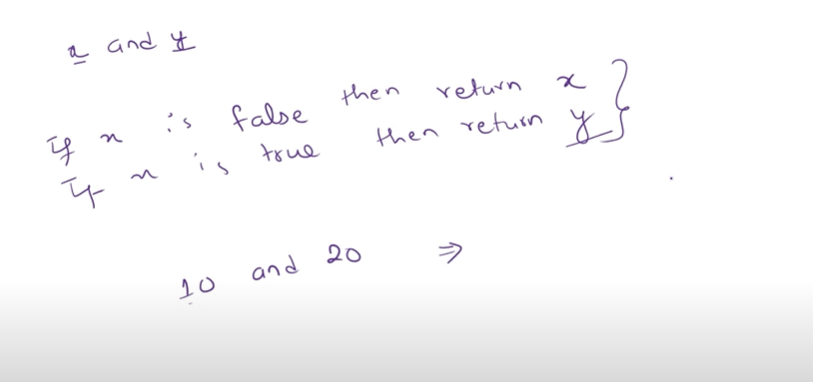 x and y
If x is false then return x
If x is true then return y
10 and 20 ⇒